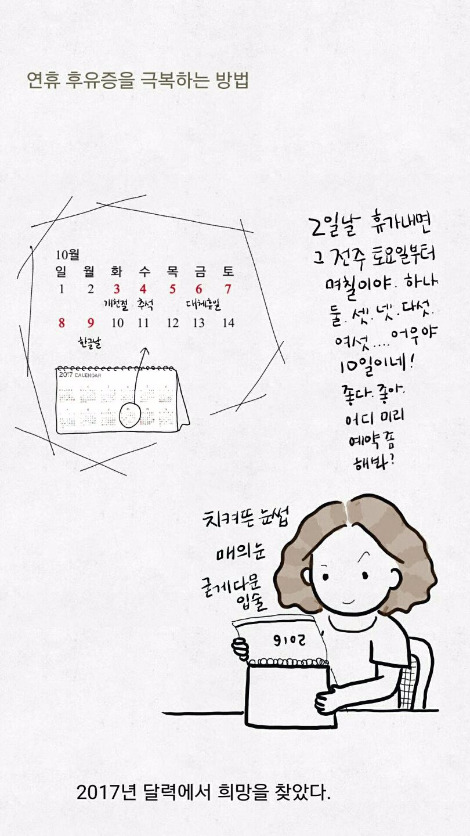 연휴 후유증을 극복하는 방법
10월
일 월 화 수 목 금 토
1 2 3 4 5 6 7
개천절 추석 대체휴일
8 9 10 11 12 13 14
한글날
2017 CALENDAR
2일날 휴가내면
그 전주 토요일부터
며칠이야. 하나
둘. 셋. 넷. 다섯.
여섯.... 어우야
10일이네!
좋다. 좋아.
어디 미리
예약 좀
해봐?
치켜뜬 눈썹
매의눈
굳게다문
입술
2016
2017년 달력에서 희망을 찾았다.